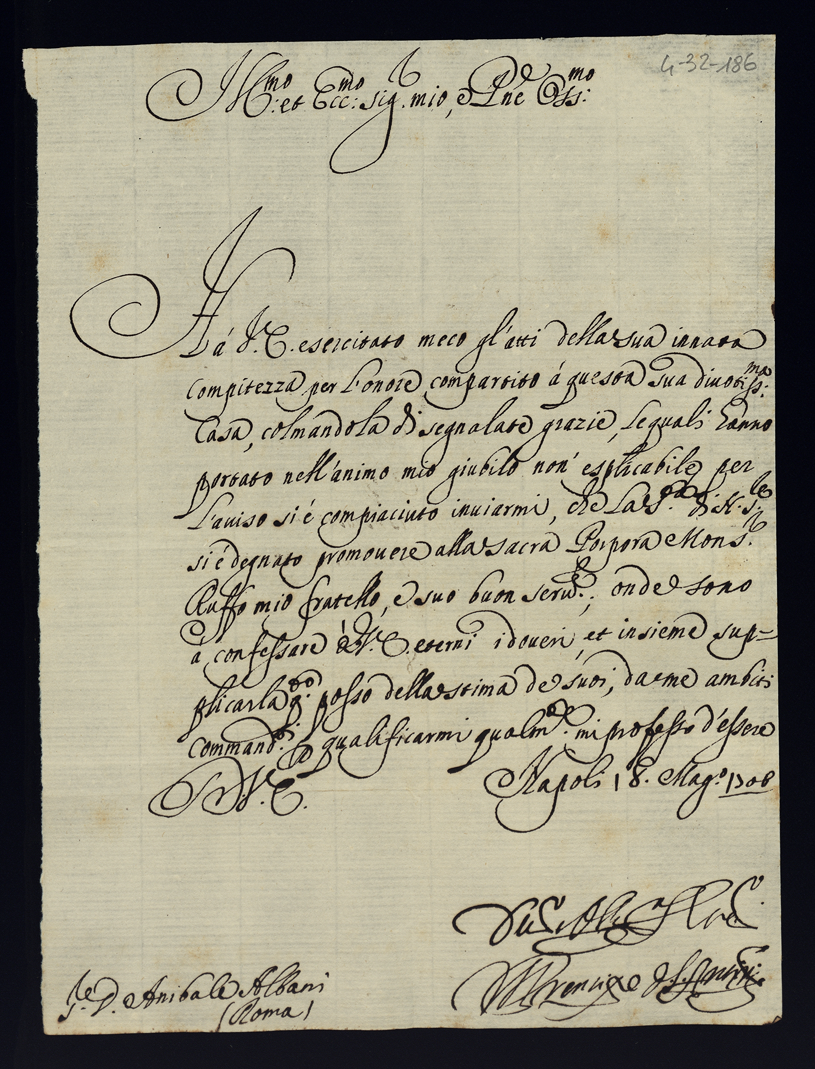 4-32-186
Ill.mo et Ecc.mo Sig.r mio, e P.ne Oss.mo
Hà V. E. esercitato meco gl'atti della sua innata
compitezza per l'onore compartito à questa sua divotiss.ma
Casa, colmandola di segnalate grazie, le quali hanno
portato nell'animo mio giubilo non' esplicabile per
l'aviso si è compiaciuto inviarmi, che la S.tà di N. S.re
si è degnato promovere alla sacra Porpora Mons.r
Ruffo mio fratello, e suo buon serv.re, onde sono
à confessare à V. E. eterni i doveri, et insieme sup-
plicarla q.to posso della stima de suoi, da me ambiti
command.i p qualificarmi qualm.te mi professo d'essere
D. V. E. Napoli 18. Mag.o 1706
Il Prencipe
S.r D. Anibale Albani
(Roma)